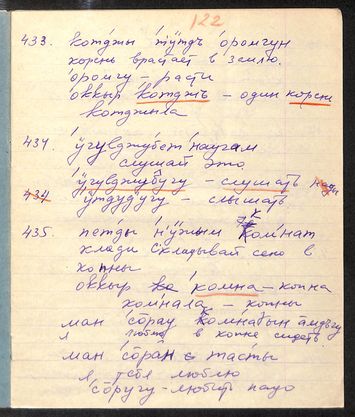 122
433. котджы тӱтдъ оромгун
корень врастает в землю.
оромгу – расти
оккыр котджъ – один корень
котджыла
434. ӱгувджубет наугам
слушай это.
ӱгувджубугу – слушать
434 ӱтдудугу – слышать
435. петды нӱжым комнат
клади складывай сено в
копны
оккыр комна – копна
комнала – копны
ман сорау комнабын амдыгу
я люблю в копне сидеть.
ман соран с тасты
я тебя люблю
соругу – любить надо